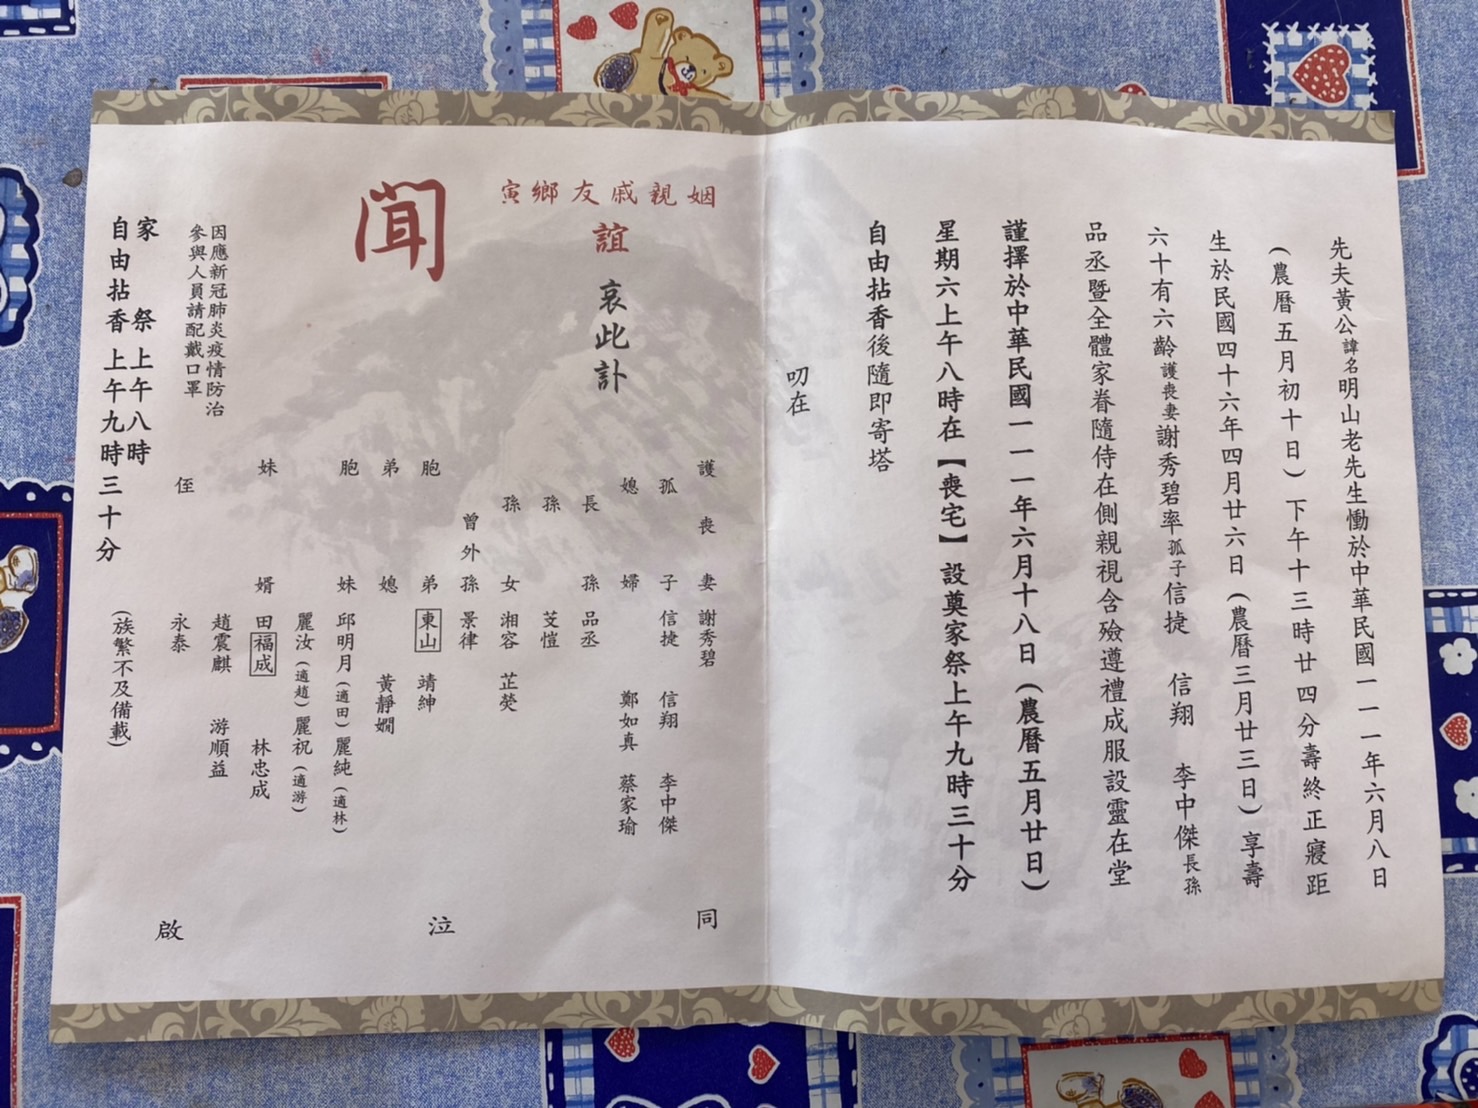 先夫黃公諱名明山老先生慟於中華民國一一一年六月八日
(農曆五月初十日)下午十三時廿四分壽終正寢距
生於民國四十六年四月廿六日(農曆三月廿三日)享壽
六十有六齡護喪妻謝秀碧率孤子信捷 信翔 李中傑長孫
品丞暨全體家眷隨侍在側親視含殮遵禮成服設靈在堂
謹擇於中華民國一一一年六月十八日(農曆五月廿日)
星期六上午八時在【喪宅】設奠家祭上午九時三十分
自由拈香後隨即寄塔
叨在
姻親戚友鄉寅
誼
哀此訃
聞
護喪妻 謝秀碧
孤子 信捷 信翔 李中傑
媳婦 鄭如真 蔡家瑜
長孫 品丞
孫 芠愷
孫女 湘容 芷熒
曾外孫 景律
胞弟 東山 靖紳
弟媳 黃靜嫺
胞妹 邱明月(適田)麗純(適林)
麗汝(適趙)麗祝(適游)
妹婿 田福成 林忠成
趙震麒 游順益
侄 永泰
(族繁不及備載)
同泣啟
因應新冠肺炎疫情防治
參與人員請配戴口罩
家祭 上午八時
自由拈香 上午九時三十分